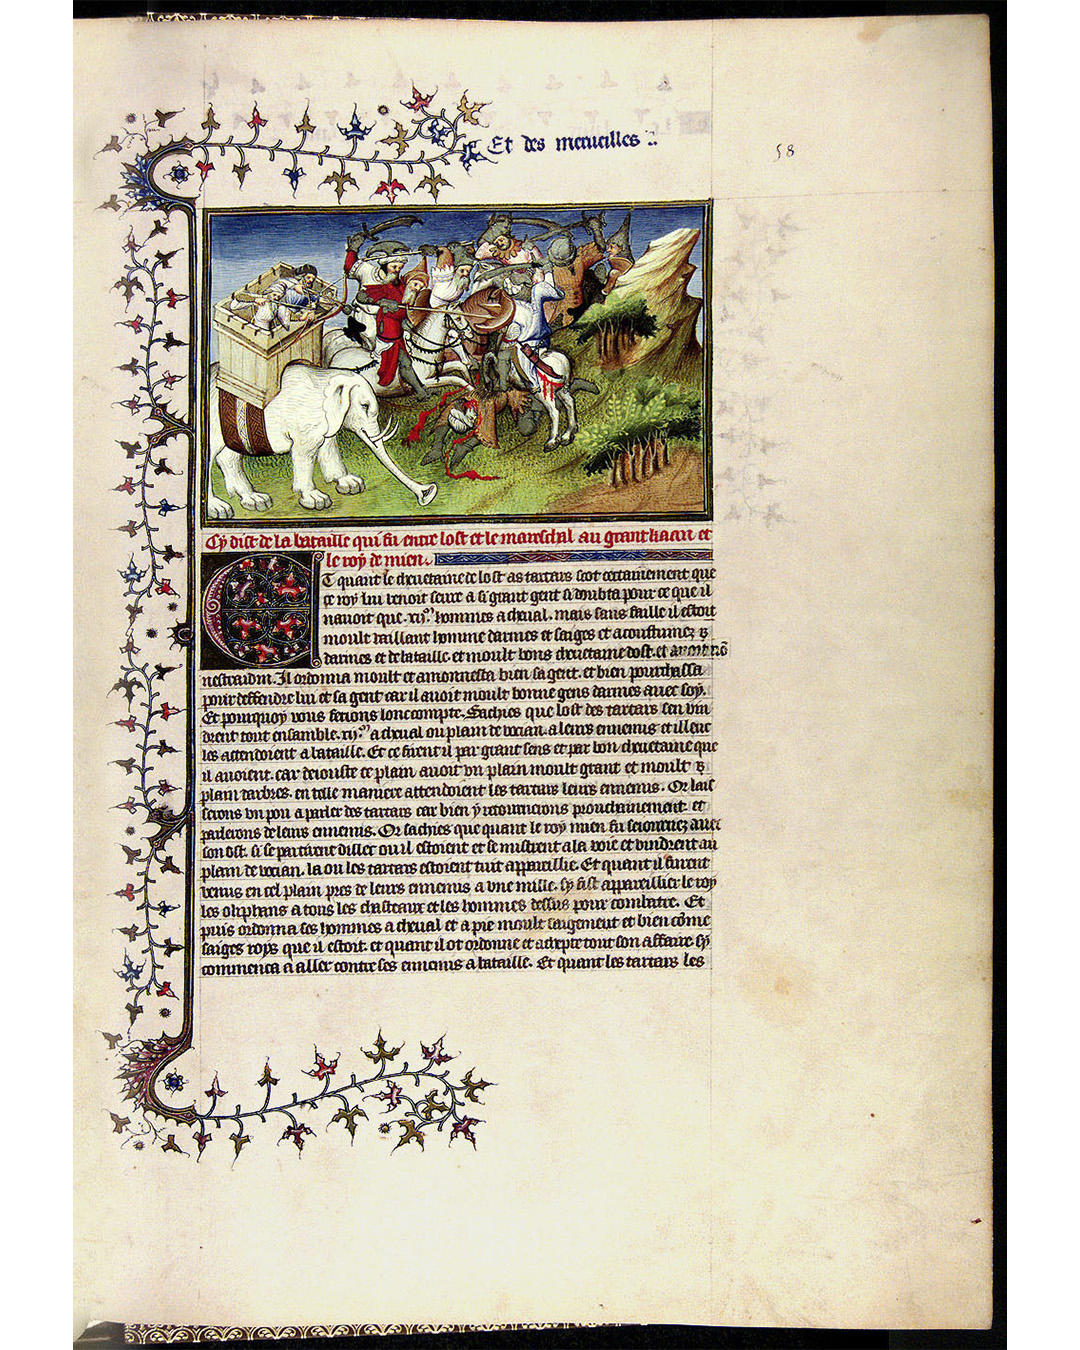 Et des merueilles
58
Cy dist de la bataille qui fu entre lost et le mareschal au grant kaan et
le roy de mien.
Et quant le cheuetaine de lost as tartars scot certainement que
ce roy lui venoit seure a si grant gent si doubta pour ce que il
nauoit que .xij.m hommes a cheual. mais sans faille il estoit
moult vaillant homme darmes et saiges et acoustumez
darmes et de bataille et moult bons cheuetaine dost. et
Il ordonna moult et amonnesta bien sa gent. et bien pourchassa
pour deffendre lui et sa gent car il auoit moult bonne gens darmes auec soy.
Et pourquoy vous ferons lonc compte. Sachies que lost des tartars sen vin
drent tout ensamble .xij.m a cheual ou plain de vocian. a leurs ennemis et illeuc
les attendoient a bataille. Et ce firent il par grant sens et par bon cheuetaine que
il auoient. car deiouste ce plain auoit vn plain moult grant et moult
plain darbres. en telle maniere attendoient les tartars leurs ennemis. Or lais
serons vn pou a parler des tartars car bien y retournerons prouchainement et
parlerons de leurs ennemis. Or sachies que quant le roy mien fu seiournez auec
son ost. si se partirent dillec ou il estoient et se mistrent a la voie et vindrent au
plain de vocian. la ou les tartars estoient tuit appareillie. Et quant il furent
venus en cel plain pres de leurs ennemis a vne mille. sy fist appareillier le roy
les oliphans a tous les chasteaux et les hommes dessus pour combatre. Et
puis ordonna ses hommes a cheual et a pie moult saigement et bien come
saiges roys que il estoit. et quant il ot ordonne et tout son affaire sy
commenca a aller contre ses ennemis a bataille. Et quant les tartars les